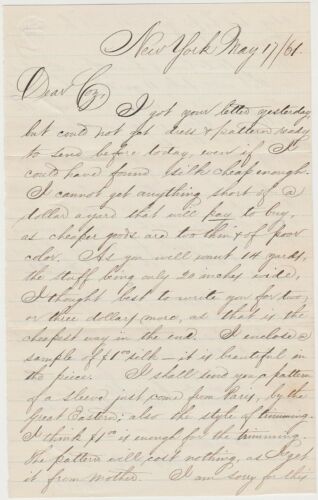 New York May 17/61.
Dear Coz,
I got your letter yesterday
but could not get dress & pattern ready
to send before today, even if I
could have found silk cheap enough.
I cannot get anything short of a
dollar a yard that will pay to buy,
as cheaper goods are too thin & of poor
color. As you will want 14 yards,
the stuff being only 20 inches wide,
I thought best to write you for two
or three dollars more, as that is the
cheapest way in the end. I enclose a
sample of $1.00 silk – it is beautiful in
the piece. I shall send you a pattern
of a sleeve just come from Paris, by the
Great Eastern; also the style of trimming.
I think $1.00 is enough for the trimming.
The pattern will cost nothing, as I get
it from Mother. I am sorry for this